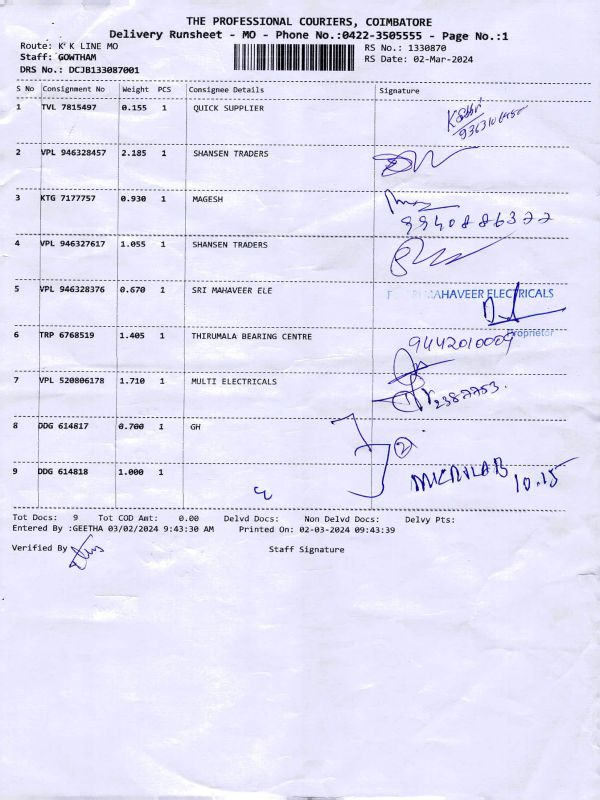 THE PROFESSIONAL COURIERS, COIMBATORE
Delivery Runsheet - MO - Phone No.:0422-3505555 - Page No.:1
Route: K K LINE MO RS No.: 1330870
Staff: GOWTHAM RS Date: 02-Mar-2024
DRS No.: DCJB133087001
S No Consignment No Weight PCS Consignee Details Signature
1 TVL 7815497 0.155 1 QUICK SUPPLIER
2 VPL 946328457 2.185 1 SHANSEN TRADERS
3 KTG 7177757 0.930 1 MAGESH
9940886377
4 VPL 946327617 1.055 1 SHANSEN TRADERS
5 VPL 946328376 0.670 1 SRI MAHAVEER ELE MAHAVEER ELECTRICALS
Proprietor
6 TRP 6768519 1.405 1 THIRUMALA BEARING CENTRE 9442010009
7 VPL 520806178 1.710 1 MULTI ELECTRICALS 2387753.
8 DDG 614817 0.700 1 GH 2
9 DDG 614818 1.000 1 MICROLAB 10.15
Tot Docs: 9 Tot COD Amt: 0.00 Delvd Docs: Non Delvd Docs: Delvy Pts:
Entered By :GEETHA 03/02/2024 9:43:30 AM Printed On: 02-03-2024 09:43:39
Verified By Staff Signature